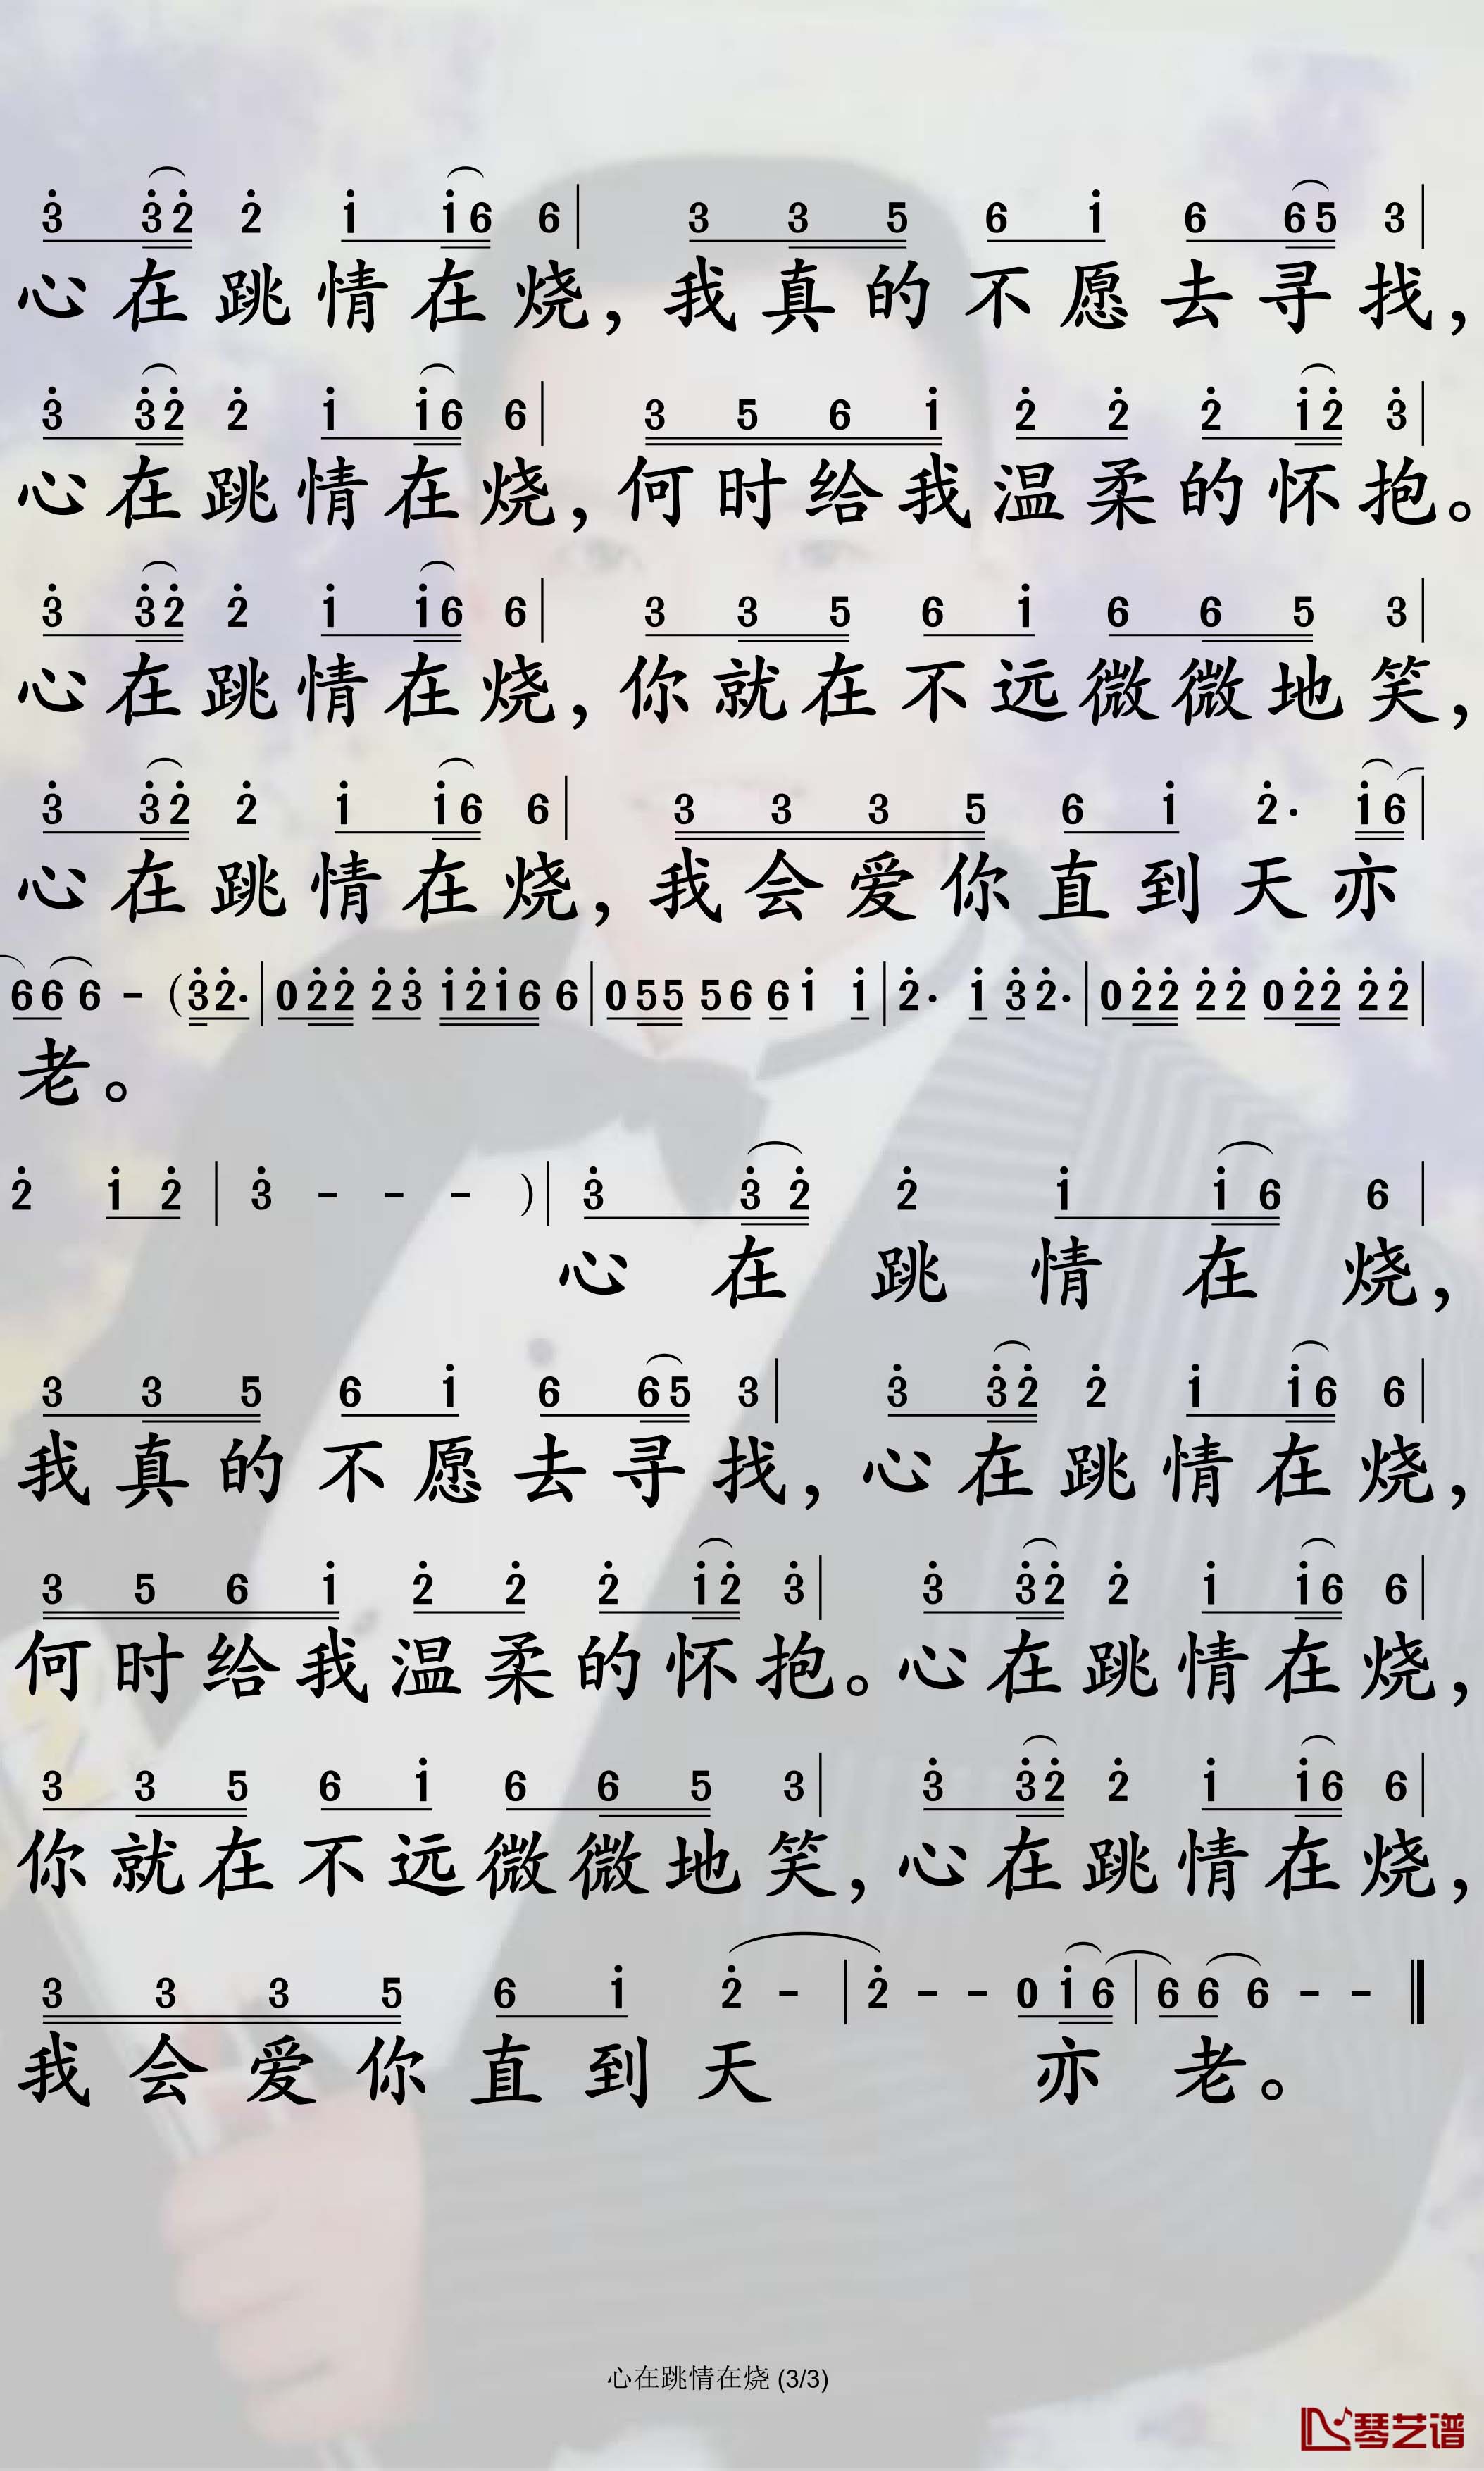 3 3 2 2 1 1 6 6 | 3 3 5 6 1 6 6 5 3 |
心在跳情在烧，我真的不愿去寻找，
3 3 2 2 1 1 6 6 | 3 5 6 1 2 2 2 1 2 3 |
心在跳情在烧，何时给我温柔的怀抱。
3 3 2 2 1 1 6 6 | 3 3 5 6 1 6 6 5 3 |
心在跳情在烧，你就在不远微微地笑，
3 3 2 2 1 1 6 6 | 3 3 3 5 6 1 2· 1 6 |
心在跳情在烧，我会爱你直到天亦
6 6 6 - (3 2· | 0 2 2 2 3 1 2 1 6 6 | 0 5 5 5 6 6 1 1 | 2· 1 3 2· | 0 2 2 2 2 0 2 2 2 2 |
老。
2 1 2 | 3 - - - ) | 3 3 2 2 1 1 6 6 |
心在跳情在烧，
3 3 5 6 1 6 6 5 3 | 3 3 2 2 1 1 6 6 |
我真的不愿去寻找，心在跳情在烧，
3 5 6 1 2 2 2 1 2 3 | 3 3 2 2 1 1 6 6 |
何时给我温柔的怀抱。心在跳情在烧，
3 3 5 6 1 6 6 5 3 | 3 3 2 2 1 1 6 6 |
你就在不远微微地笑，心在跳情在烧，
3 3 3 5 6 1 2 - | 2 - - 0 1 6 | 6 6 6 - - ‖
我会爱你直到天 亦老。
心在跳情在烧 (3/3)
琴艺谱